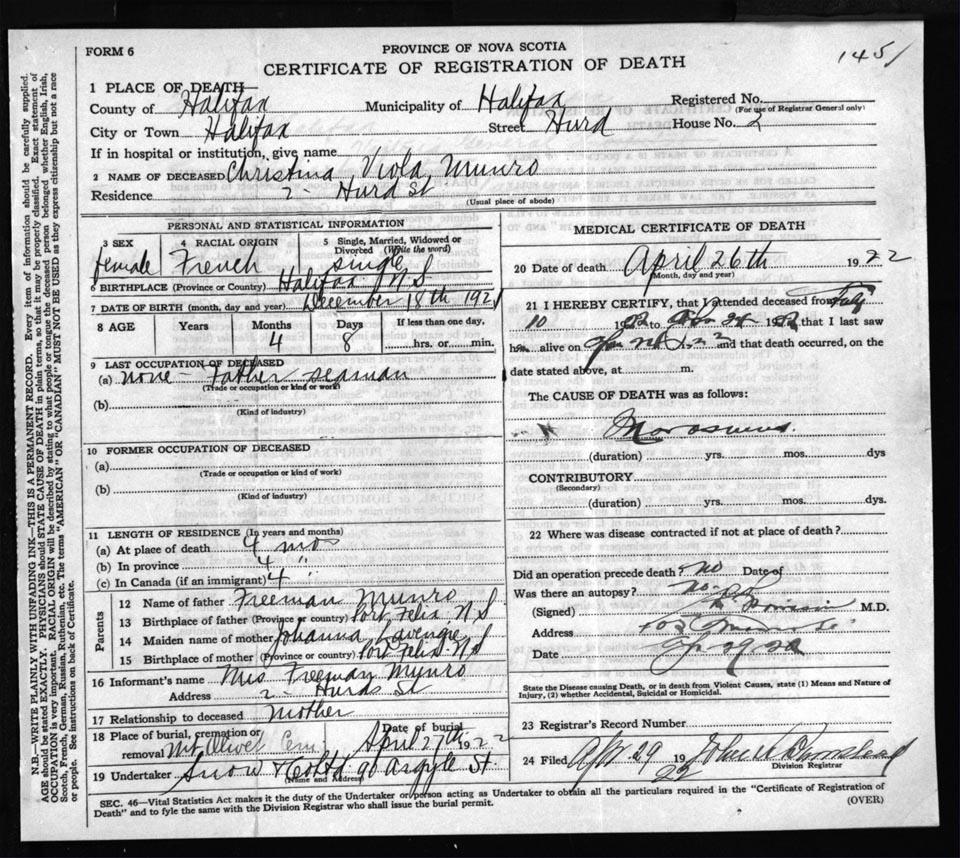 FORM 6
PROVINCE OF NOVA SCOTIA
CERTIFICATE OF REGISTRATION OF DEATH
1451
1 PLACE OF DEATH
County of Halifax Municipality of Halifax Registered No.
(For use of Registrar General only)
City or Town Halifax Street Hurd House No. 2
If in hospital or institution, give name
2 NAME OF DECEASED Christina Viola Munro
Residence 2 - Hurd St
(Usual place of abode)
PERSONAL AND STATISTICAL INFORMATION
3 SEX 4 RACIAL ORIGIN 5 Single, Married, Widowed or Divorced (Write the word)
female French single
6 BIRTHPLACE (Province or Country) Halifax N S
7 DATE OF BIRTH (month, day and year) December 18th 1921
8 AGE Years Months Days If less than one day,
4 8 hrs. or min.
9 LAST OCCUPATION OF DECEASED
(a) none - Father seaman
(Trade or occupation or kind of work)
(b)
(Kind of industry)
10 FORMER OCCUPATION OF DECEASED
(a)
(Trade or occupation or kind of work)
(b)
(Kind of industry)
11 LENGTH OF RESIDENCE (in years and months)
(a) At place of death 4 mos
(b) In province 4 "
(c) In Canada (if an immigrant) 4 "
Parents
12 Name of father Freeman Munro
13 Birthplace of father (Province or country) Port Felix N S
14 Maiden name of mother Johanna
15 Birthplace of mother (Province or country) Port Felix N S
16 Informant's name Mrs Freeman Munro
Address 2 - Hurds St
17 Relationship to deceased Mother
18 Place of burial, cremation or removal Mt Olivet Cem Date of burial April 27th 1922
19 Undertaker Snow & Co Ltd 90 Argyle St.
(Name and address)
MEDICAL CERTIFICATE OF DEATH
20 Date of death April 26th 1922
(Month, day and year)
21 I HEREBY CERTIFY, that I attended deceased from
10 19 to 19 that I last saw
h alive on and that death occurred, on the
date stated above, at m.
The CAUSE OF DEATH was as follows:
Marasmus
(duration) yrs. mos. dys
CONTRIBUTORY
(Secondary)
(duration) yrs. mos. dys.
22 Where was disease contracted if not at place of death?
Did an operation precede death? no Date of
Was there an autopsy? no
(Signed) M.D.
Address
Date
State the Disease causing Death, or in death from Violent Causes, state (1) Means and Nature of Injury, (2) whether Accidental, Suicidal or Homicidal.
23 Registrar's Record Number
24 Filed Apr 29 1922
Division Registrar
SEC. 46—Vital Statistics Act makes it the duty of the Undertaker or person acting as Undertaker to obtain all the particulars required in the "Certificate of Registration of
Death" and to fyle the same with the Division Registrar who shall issue the burial permit.
(OVER)
N.B.—WRITE PLAINLY WITH UNFADING INK—THIS IS A PERMANENT RECORD. Every item of information should be carefully supplied.
AGE should be stated EXACTLY. PHYSICIANS should STATE CAUSE OF DEATH in plain terms, so that it may be properly classified. Exact statement of
OCCUPATION is very important. RACIAL ORIGIN will be described by stating to what people or tongue the deceased person belonged whether English, Irish,
Scotch, French, German, Russian, Ruthenian, etc. The terms "AMERICAN" OR "CANADIAN" MUST NOT BE USED as they express citizenship but not a race
or people. See instructions on back of Certificate.